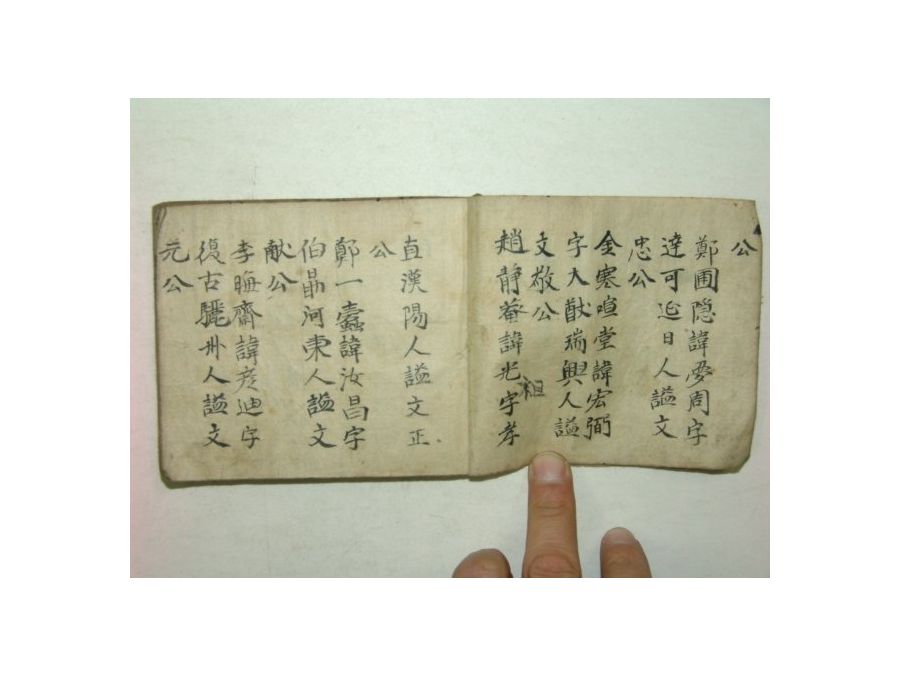 公
鄭圃隱諱夢周字
達可延日人謚文
忠公
金寒暄堂諱宏弼
字大猷瑞興人謚
文敬公
趙靜菴諱光祖字孝
直漢陽人謚文正
公
鄭一蠹諱汝昌字
伯勗河東人謚文
献公
李晦齋諱彦迪字
復古驪州人謚文
元公